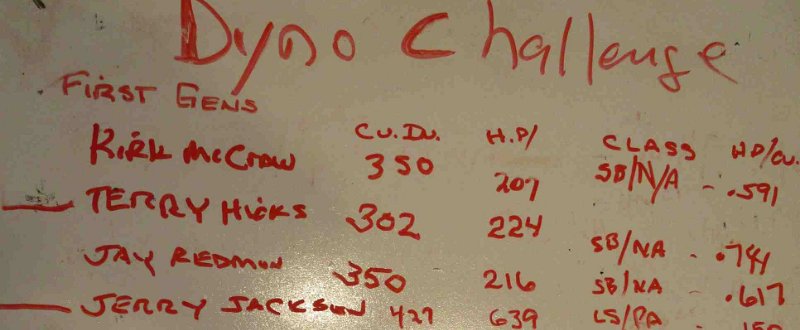 Dyno Challenge
FIRST GENS
CU.IN. H.P/ CLASS HP/CU.
KIRK McCRAW 350 207 SB/N/A - .591
TERRY HICKS 302 224 SB/NA - .741
JAY REDMON 350 216 SB/NA - .617
JERRY JACKSON 427 639 LS/PA